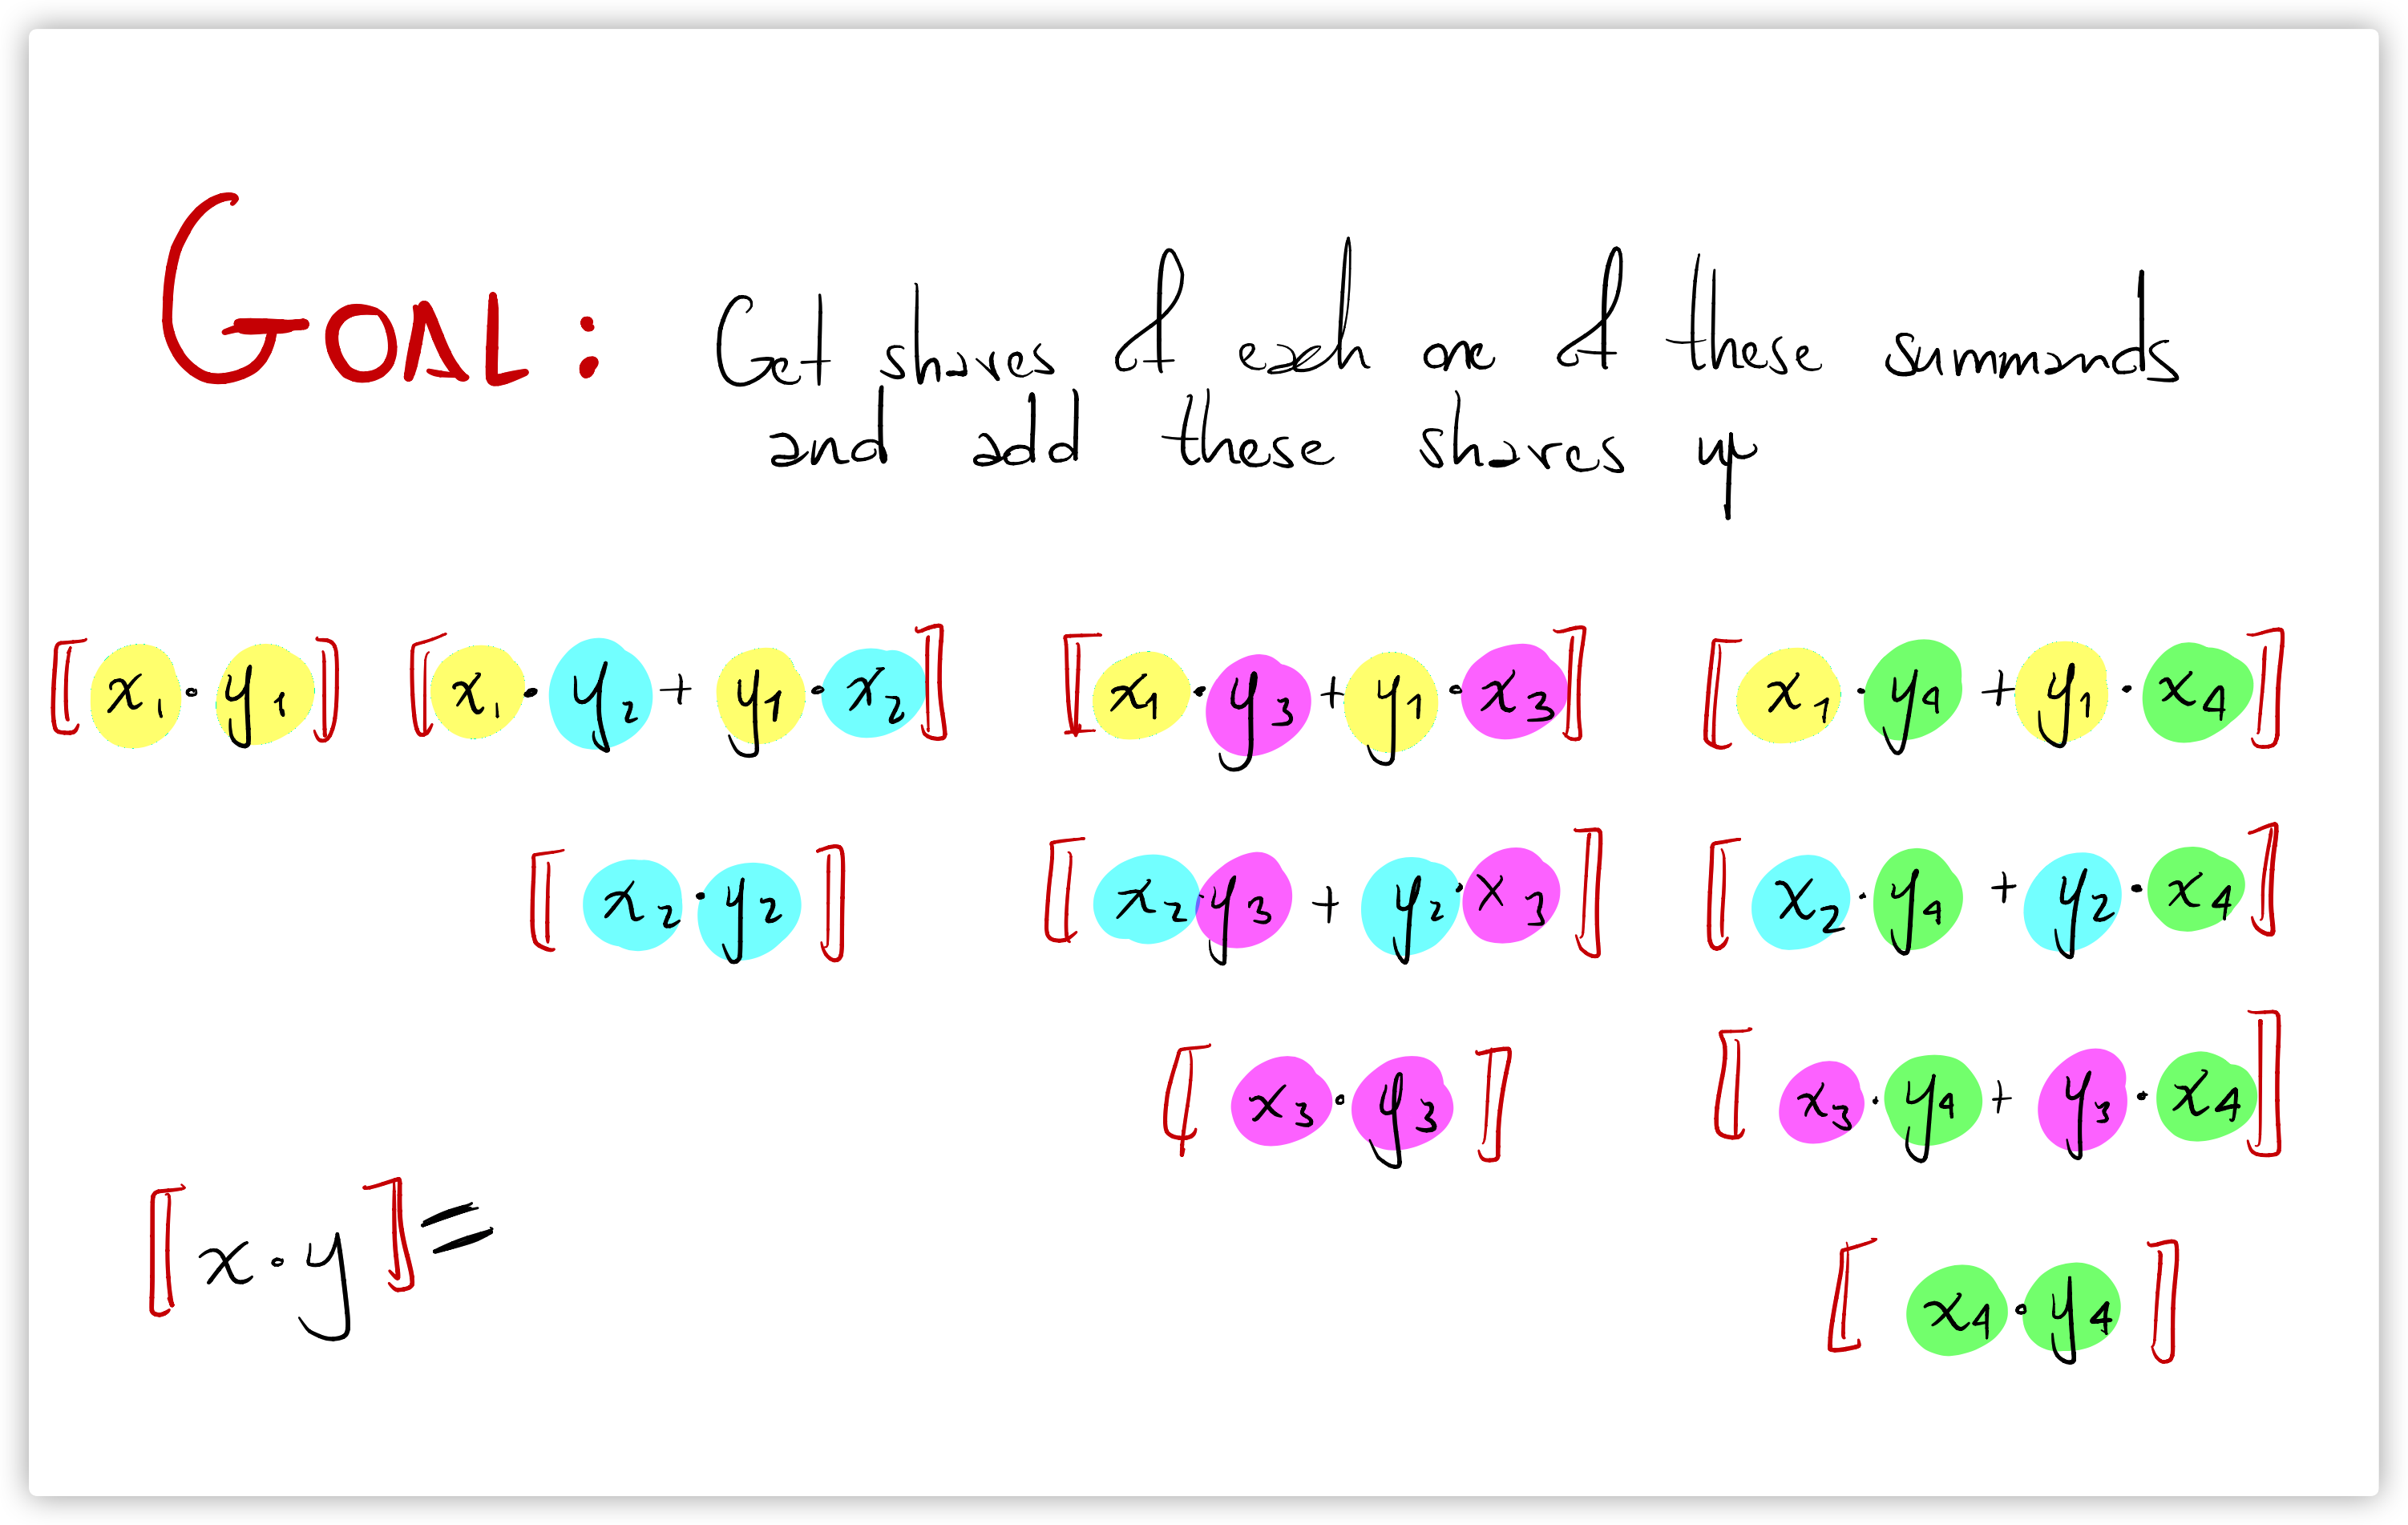 GOAL: Get shares of each one of these summands
and add these shares up
⟦x₁·y₁⟧ ⟦x₁·y₂ + y₁·x₂⟧ ⟦x₁·y₃ + y₁·x₃⟧ ⟦x₁·y₄ + y₁·x₄⟧
⟦x₂·y₂⟧ ⟦x₂·y₃ + y₂·x₃⟧ ⟦x₂·y₄ + y₂·x₄⟧
⟦x₃·y₃⟧ ⟦x₃·y₄ + y₃·x₄⟧
⟦x·y⟧=
⟦x₄·y₄⟧